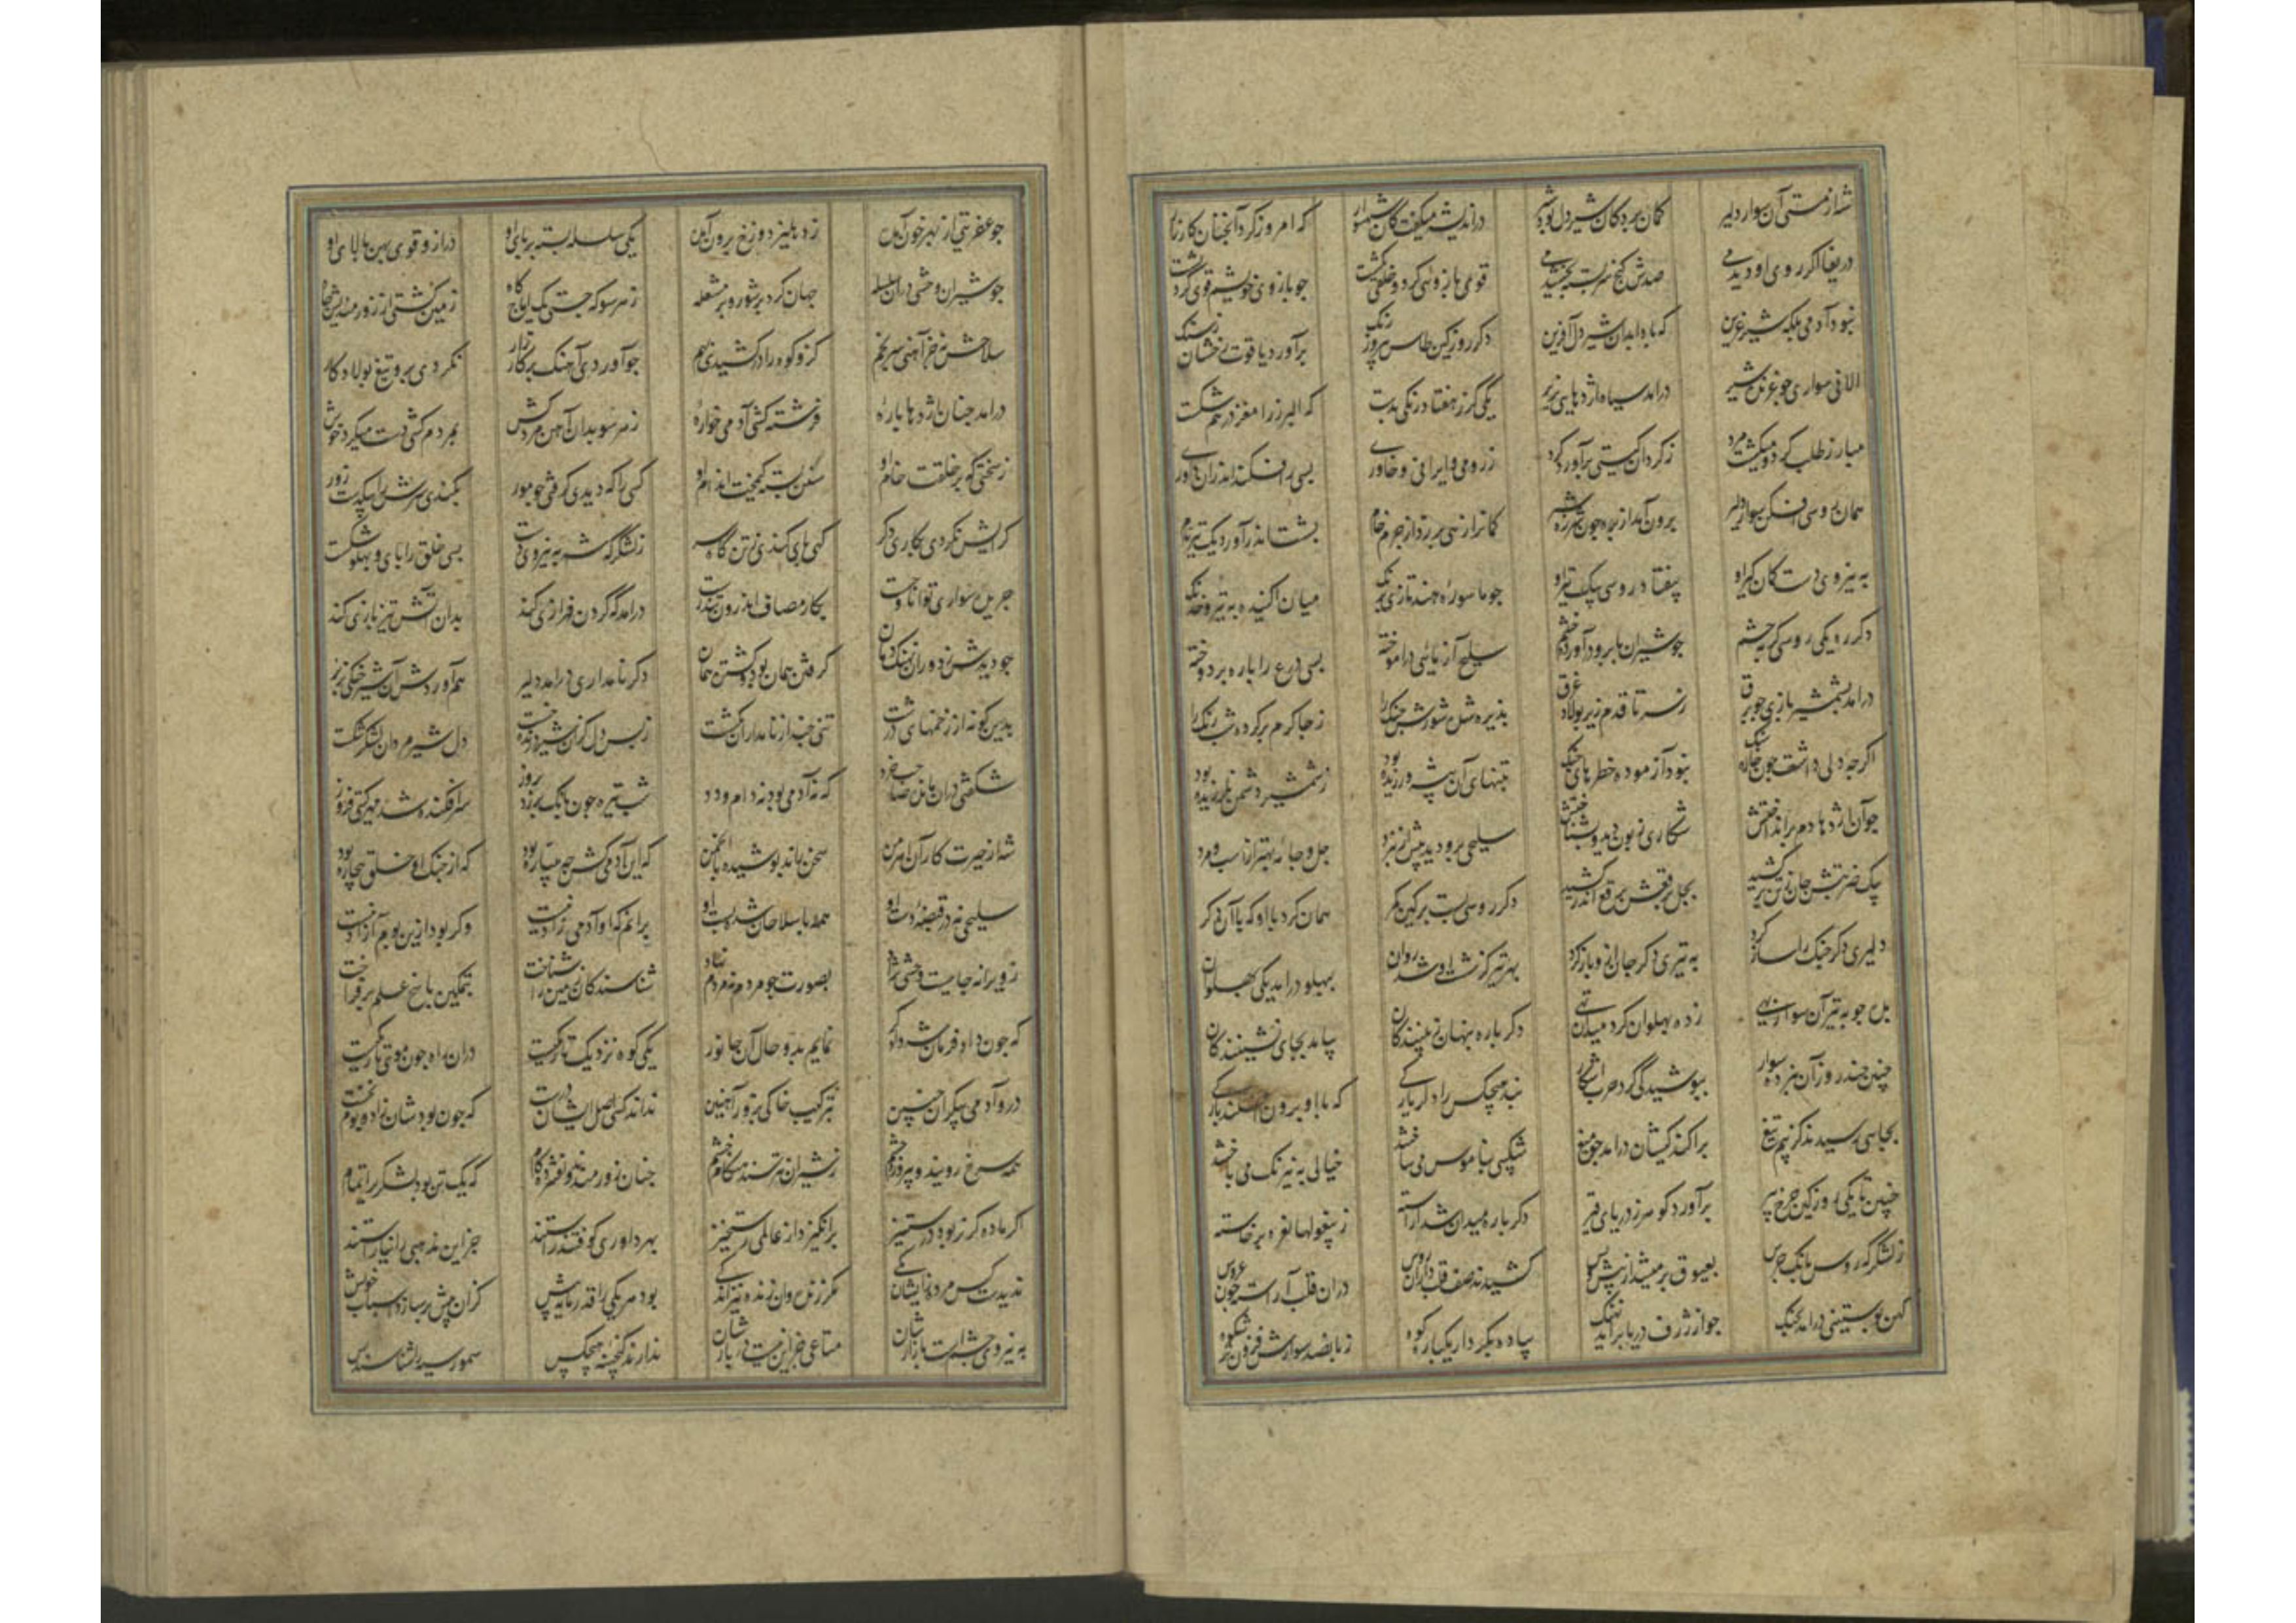 شه از مستی آن سوار دلیر گمان برد کان شیردل بود شیر در اندیشه میگفت کان شهسوار که امروز کرد آنچنان کارزار
دریغا اگر روی او دیدمی صدش گنج سربسته بخشیدمی قوی کرد و خلقی بکشت چو بازوی خویشم قوی کرد پشت
نبود آدمی بلکه شیر عرین که بادا بدان شیر دل آفرین دگر روز کین طاس پیروزه رنگ برآورد یاقوت رخشان ز سنگ
الانی سواری چو غرنده شیر درامد سیاه اژدهایی بزیر یکی گرز هفتاد رنگی بدست که البرز را مغز درهم شکست
مبارز طلب کرد و میکشت مرد ز گردان گیتی برآورد گرد ز رومی و ایرانی و خاوری بسی را فکند اندران داوری
همان روسی افکن سوار دلیر برون آمد از پره چون شرزه شیر کمانرا زهی برزد از چرم خام بشست اندر آورد یک تیر تام
به نیروی دست کمان گیر او بیفتاد روسی بیک تیر او چو ماسوره هند تازی برنگ میان آکنده به تیر خدنگ
دگر ره یکی روسی گربه چشم چو شیران بابرو درآورد خشم سلیح آزمائی درآموخته بسی درع را پاره بردوخته
درامد بشمشیر بازی چو برق ز سر تا قدم زیر پولاد غرق پذیره شدش شورش جنگ را ز جا گرم برکرد شبرنگ را
اگرچه دلی داشت چون خاره سنگ نبود آزموده خطرهای جنگ بتنهای آن پیشه ورزیده بود ز شمشیر دشمن نلرزیده بود
چو آن اژدها دم برانداختش شکاری زبون دید و بشناختش سلیحی برو دید بیش از نبرد جل و جامه بهتر از اسب و مرد
بیک ضربتش جان ز تن برکشید بجل برقعش برقع اندر کشید دگر روسی بست بر کین کمر همان کرد با او که با آن دگر
دلیری دگر جنگ را ساز کرد به تیری دگر جان ازو باز کرد بهر تیر کز شست او شد روان بپهلو درامد یکی پهلوان
بده چوبه تیر آن سوار بهی ز ده پهلوان کرد میدان تهی دگر باره پنهان ز بینندگان بیامد بجای نشینندگان
چنین چند روز آن نبرده سوار بپوشیدگی کرد حرب آشکار نبد هیچکس را دگر یارگی که با او برون افکند بارگی
بجایی رسیدند کز بیم تیغ پراکندگیشان درامد چو میغ شکیبی بناموس می ساختند خیالی به نیرنگ می باختند
چنین تا یکی روز کین چرخ پیر برآورد گوهر ز دریای قیر دگر باره میدان شد آراسته ز بیغولها نعره برخاسته
ز لشکرگه روس بانگ جرس بعیوق بر میشد از پیش و پس کشیدند صف قلب داران روس دران قلب آراسته چون عروس
کهن پوستینی درامد بجنگ چو از ژرف دریا برآید نهنگ پیاده بکردار یکپاره کوه ز پانصد سوارش فزونتر شکوه
چو عفریتی از بهر خون آمده ز دهلیز دوزخ برون آمده یکی سلسله بسته بر پای او دراز و قوی پهن بالای او
چو شیران وحشی دران سلسله جهان کرد پرشور و پر مشعله ز هر سو که جستی یک آماج گاه زمین گشتی از زور مندیش چاه
سلاحش نه جز آهنی سر بخم کزو کوه را درکشیدی بهم چو آوردی آهنگ بر کارزار نکردی برو تیغ پولاد کار
درامد چنان اژدها باره فرشته کشی آدمی خواره ز هر سو بدان آهن مردکش بمردم کشی دست میکرد خوش
ز سختی که بر خلقت خام او سفن بسته کیمخت اندام او کسی را که دیدی گرفتی چو مور بکندی سرش را بیکدست زور
گرایش نکردی بکاری دگر گهی پای کندی ز تن گاه سر ز لشکرگه شه به نیروی دست بسی خلق را پای و پهلو شکست
جریده سواری توانا و چست بکار مصاف اندرون تندرست درامد که گردن فرازی کند بدان آتش تیز بازی کند
چو دیدش ز دور آن نهنگ دمان گرفتن همان بود و کشتن همان دگر نامداری درامد دلیر هم آوردش آن شیر جنگی بزیر
بدین گونه از زخمهای درشت تنی چند از نامداران بکشت ز بس دل که زان شیر درنده خست دل شیر مردان لشکر شکست
شگفتی دران ماندن صاحب خرد که نه آدمی بود نه دام و دد شب تیره چون بانگ بر زد بروز سرافکنده شد مهر گیتی فروز
شه از حیرت کار آن اهرمن سخن راند پوشیده با انجمن که این آدمی کش چه پتیاره بود که از جنگ او خلق بیچاره بود
سلیحی نه در قبضه دست او همه با سلاحان شده پست او برانم که او آدمی زاد نیست وگر بود ازین بوم آزاد نیست
ز ویرانه جاییست وحشی نژاد بصورت چو مردم نه مردم نهاد شناسنده کان زمین را شناخت بتمکین پاسخ علم برفراخت
که چون داد فرمان شه دادگر نمایم بدو حال آن جانور یکی کوه نزدیک تاریکیست دران راه چون موی باریکیست
درو آدمی پیکران چنین بترکیب خاکی بزور آهنین نداند کسی اصل ایشان درست که چون بودشان زاد و بوم نخست
همه سرخ رویند و پیروزه چشم ز شیران نترسند هنگام خشم چنان زورمندند و افشرده گام که یک تن بود لشکری را تمام
اگر ماده گر نر بود در ستیز برانگیزد از عالمی رستخیز بهر داوری کوفتد راستند جز این مذهبی را نیاراستند
ندیدست کس مرده زایشان یکی مگر زنده وان زنده نیز اندکی بود هر یکی را قدر مایه میش کزان میش برسازد اسباب خویش
به نیروی پشمست بازارشان متاعی جز این نیست در بارشان ندارند گنجینه هیچکس سمور سیه را شناسند و بس